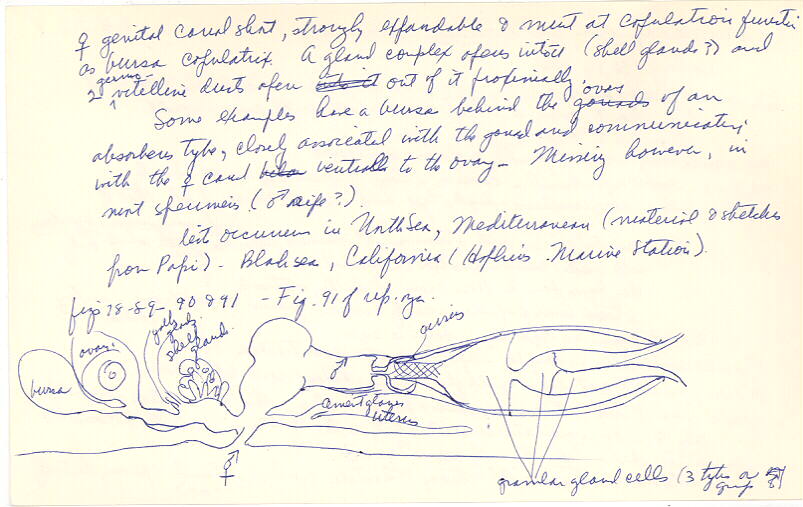 ♀ genital canal short, strongly expandable & must at copulation function
as bursa copulatrix. A gland complex opens into it (shell glands?) and
2 germo-vitelline ducts open out of it proximally.
Some examples have a bursa behind the ovary of an
absorbens type, closely associated with the gonad and communicating
with the ♀ canal ventrally to the ovary - Missing however, in
most specimens (♂ ripe?).
List occurrences in North Sea, Mediterranean (material & sketches
from Papi) - Black Sea, California (Hopkins Marine Station).
figs 78-89-90 & 91 - Fig. 91 of rep. org.
bursa
ovary
yolk glands
shell glands
♂
cirrus
cement glands
uterus
⚥
granular gland cells (3 types or groups